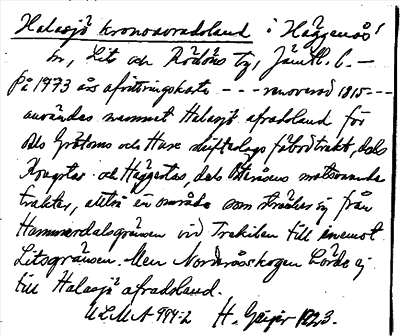 Halasjö kronoavradsland i Häggenås
sn, Lits och Rödöns tg, Jämtl. l. —
På 1773 års afvittringskarta - - - renoverad 1815 - - -
användes namnet Halasjö afradsland för
dels Gräfsåsens och Huse skifteslags fäbodtrakt, dels
Kougstas och Häggestas, dels Bteråsens motsvarande
trakter, alltså en område som sträcker sig från
Hammerdalsgränsen vid Trekilen till inemot
Litsgränsen. Men Nordåsskogen hörde ej
till Halasjö afradsland.
ULMA 999:2 H. Geijer 1923.